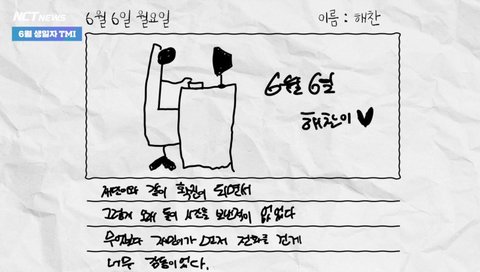 NCT NEWS
6월 생일자 TMI
6월 6일 월요일
이름 : 해찬
6월 6일
해찬이 ♥
재민이와 같이 확진이 되면서
그렇게 오래 둘이 시간을 보낸적이 없었다
무엇보다 재민이가 먼저 전화를 한게
너무 감동이었다.